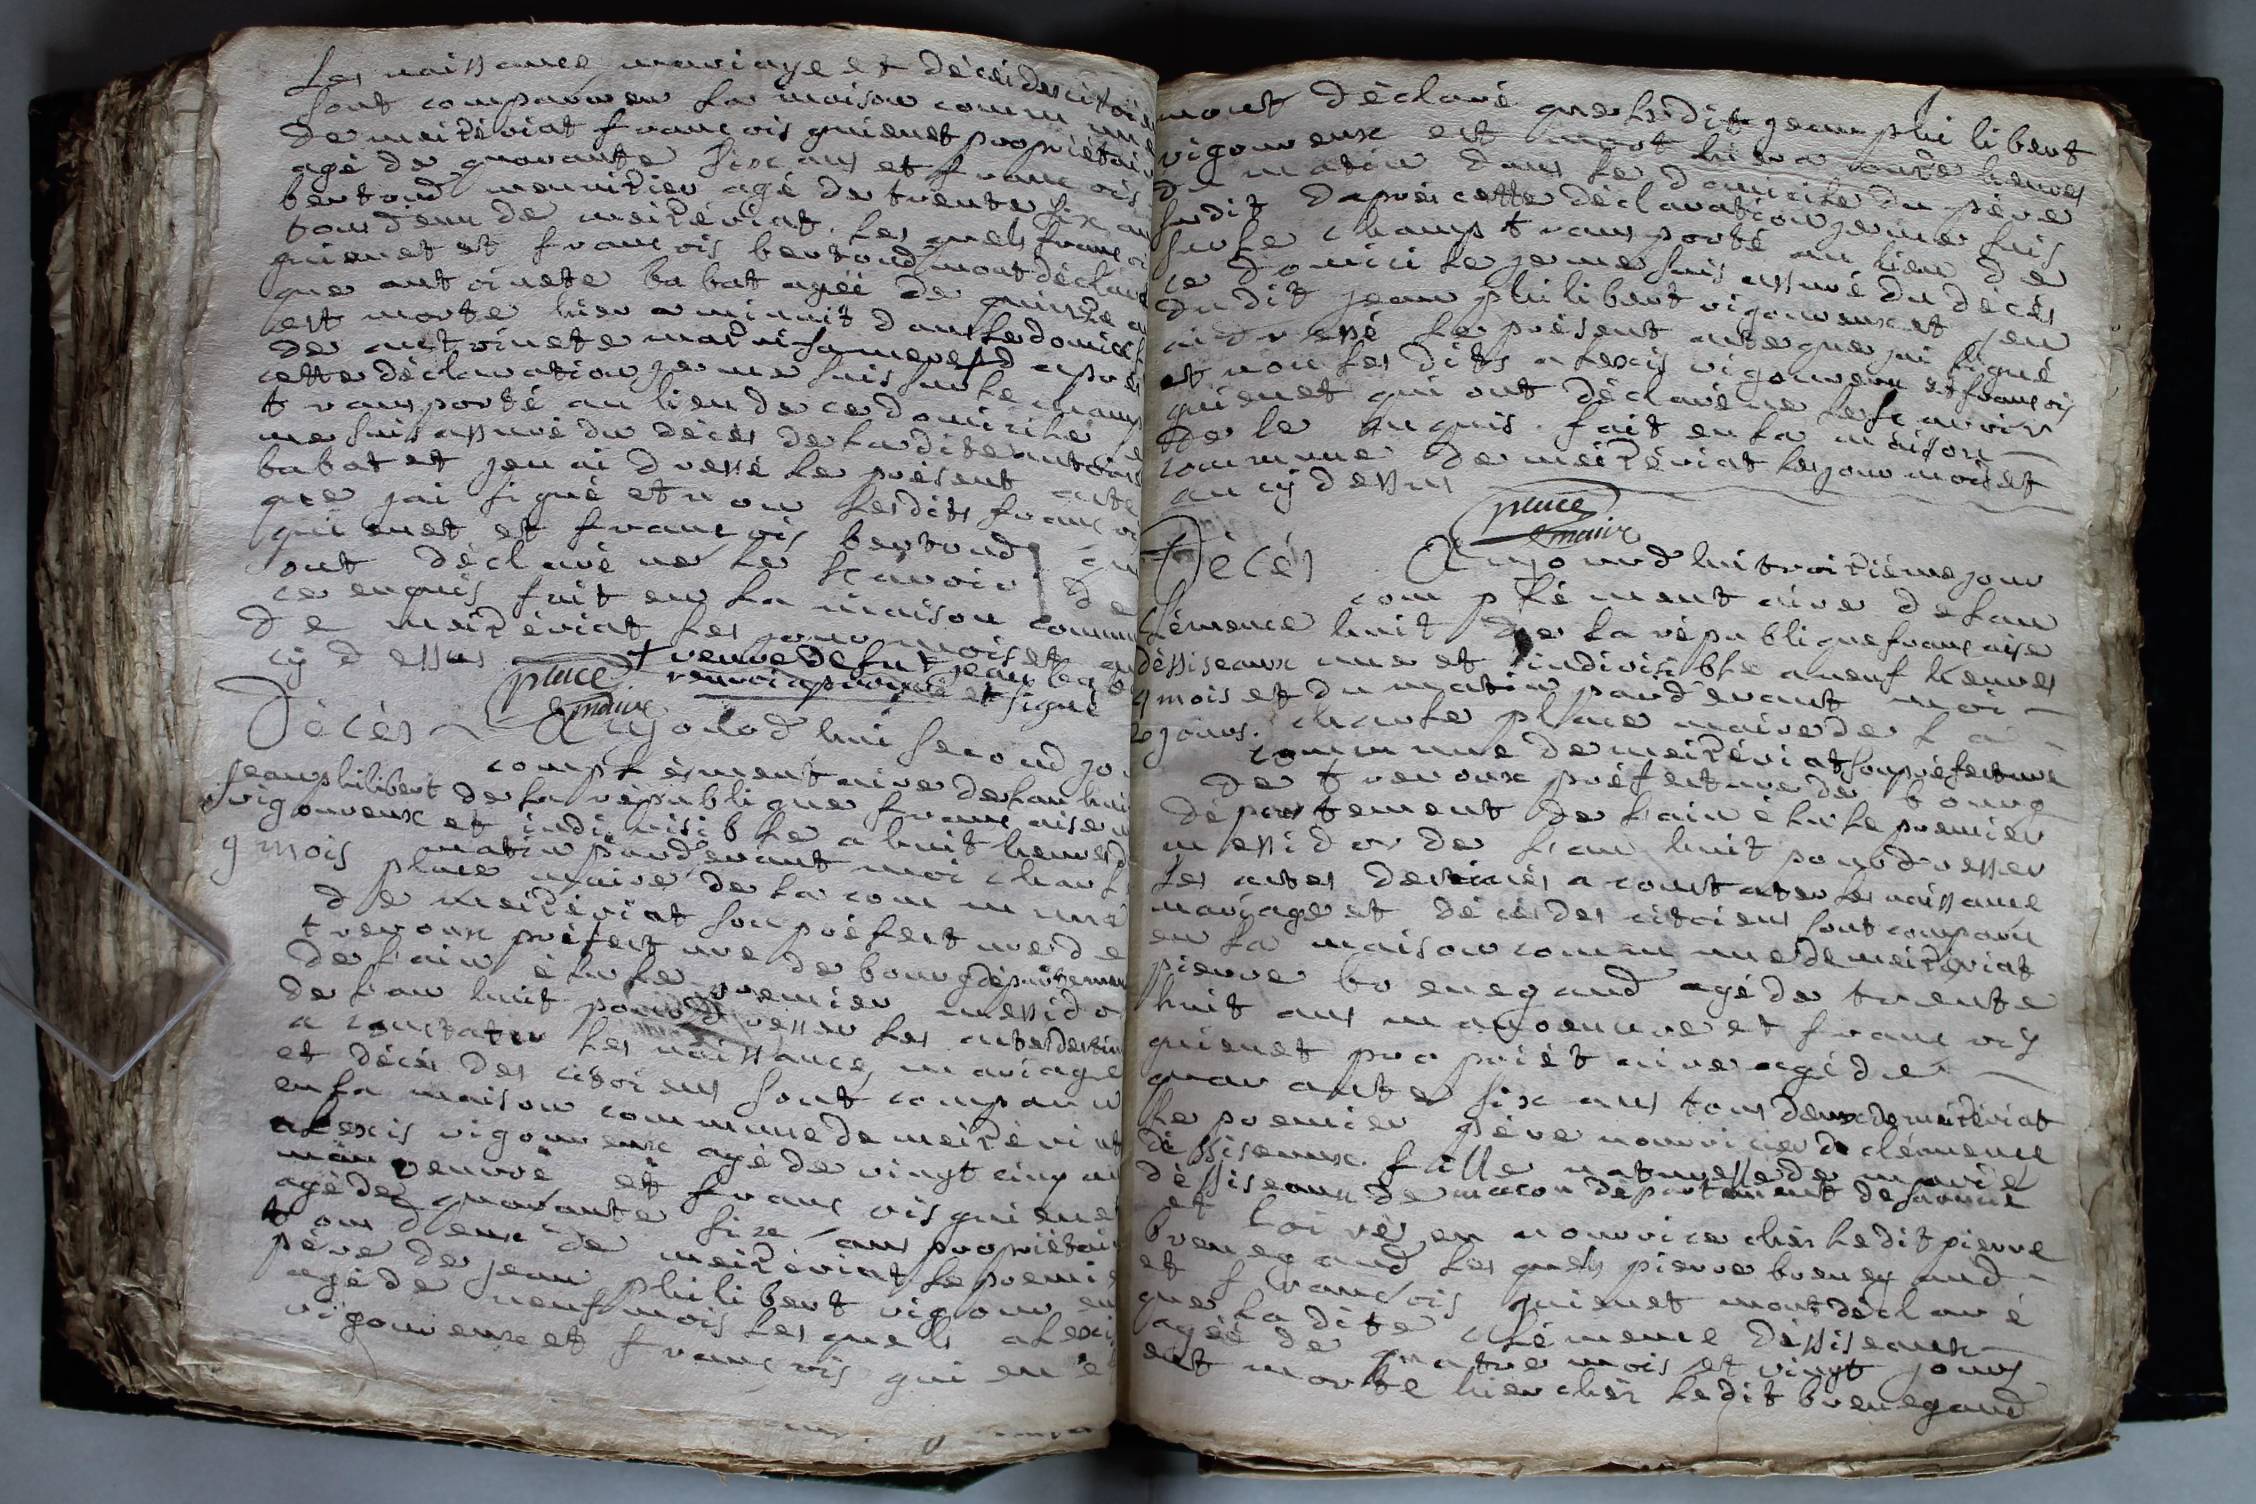 Les naissance, mariage et décéi des citoie
sont comparuen la maison comm un
de meizériat francois guienet propriétai
agé de quarante six ans et francois
bertoud meunitier agé de trente six an
tous deux de meizériat. les quels franc oi
guienet et francois bertoud mont déclaré
que antoinete babat agéé de quinze a
est morte hier a minuit dans le domicil
de antoinete marvi sa mere + d aprés
cette déclaration je me suis sur le champ
transporté au lieu de ce domicihe
me suis assuré du décés de ladite antoin
babat et jen ai dressé le présent acte
que jai signé et non lesdits franc oi
guienet et francois bertoud qu
ont déclaré ne le scavoir de
ce enquis fait en la maison commu
de meizériat les jour mois et an
cy dessus + veuve de fut jean ba b
renvoi aprouvé et signé
place
maire
Décés Aujoud hui second jo
complémentaire de lan hui
jean philibert de la républi que franc aise u
vigoureux et indivisible a huit heures d
9 mois matin pard'evant moi charl
place maire de la com mune
de meizériat souprefect ure de
trevoux préfect ure de bourg départemen
de lain élu le premier messido
de lan huit pour dresser les actes destin
a constater les naissance, mariage
et décés des citoiens sont comparu
en la maison commune de meizériat
alexis vigoureux agé de vingt cinq an
man oeuvre et franc ois guienet
agé de quarante six ans propriétair
tous deux de meizériat le premie
pére de jean philibert vigour eu
agé de neuf mois les quels alexi
vigoureux et franc ois gui en e
mont déclaré que ledit jean phi libert
vigoureux est mort hier a onze heures
du matin dans le domicihe du pére
susdit daprés cette déclaration je me suis
sur le champ t rans porté au lieu de
ce domicihe je me suis assuré du décés
dudit jean philibert vigoureux et jen
ai dressé le présent acte que jai signé
et non les dits alexis vigoureux et francois
guienet qui ont déclaré ne le sc avoir
de le enquis. fait en la maison
commune de meizériat les jour mois et
an cy dessus
place
maire
Décés Aujourd hui troizième jour
com plément aire de lan
clémence huit de la république franc aise
déssiseaux une et indivisi ble a neuf heures
4 mois et du matin pard'evant moi
20 jours. charle place maire de la
commune de meizériat souprefecture
de trevoux préfecture de bourg
département de lain élu le premier
messidor de lan huit pour dresser
les actes destinés a constater les naissance
mariage et décés des citoiens sont comparu
en la maison commune de meizériat
pierre brenegaud agé de trente
huit ans manoeuvre et franc ois
guienet pro priét aire agé de
quarante six ans tous deux de meizériat
le premier pére nourricier de clémence
déssiseaux fille naturelle de marie
déssiseaux de macon département de saonne
et loire, en nourrice chés ledit pierre
brenegaud les quels pierre brenegaud
et francois guienet mont déclaré
que ladite clémence déssiseaux
agéé de quatre mois et vingt jours
est morte hier chés ledit brenegaud